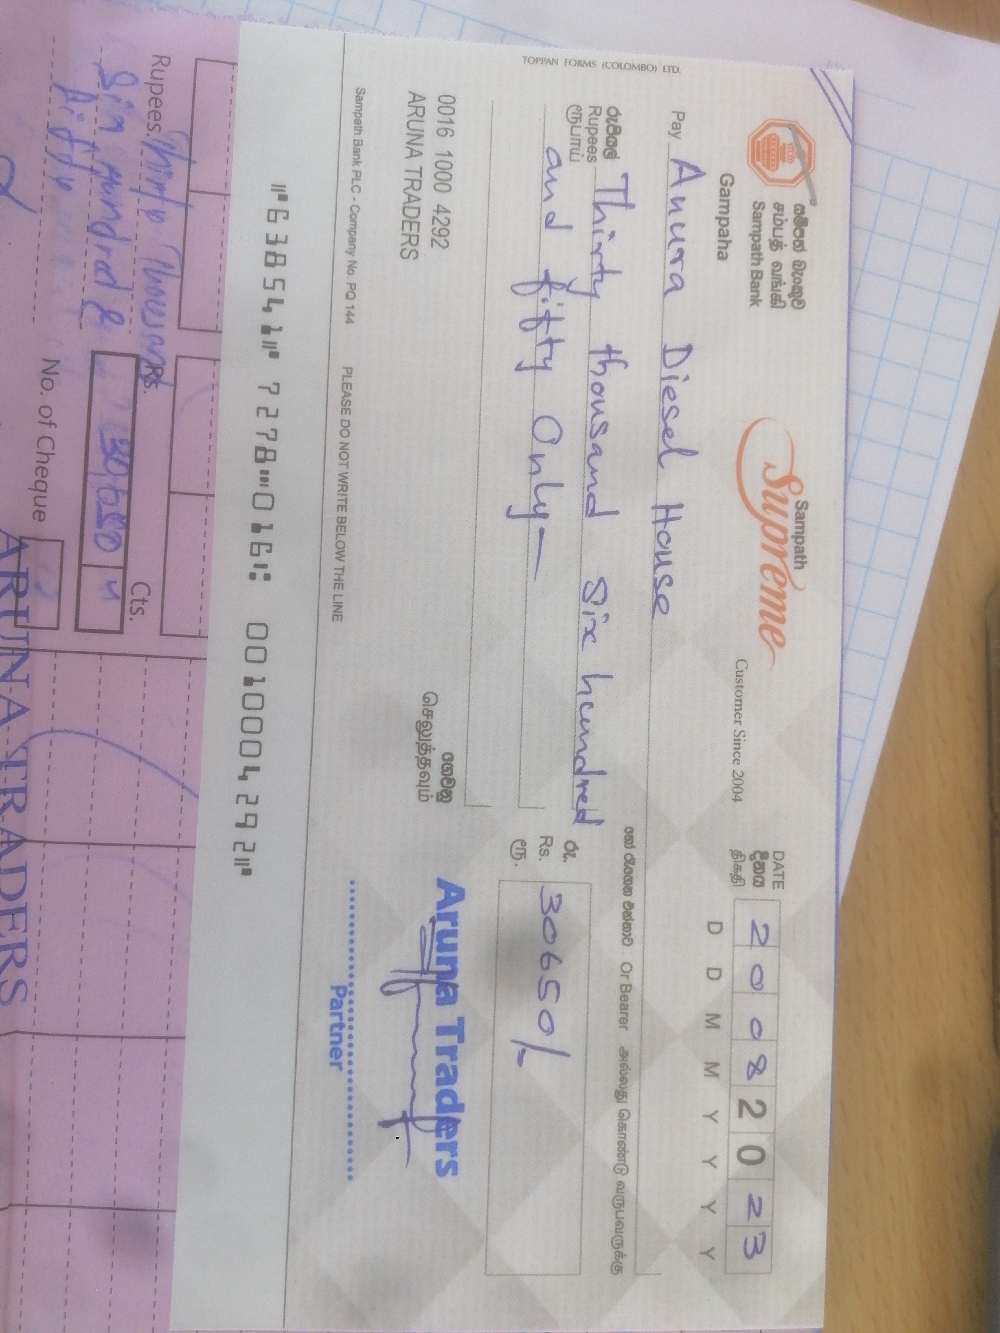 TOPPAN FORMS (COLOMBO) LTD.
සම්පත් බැංකුව
சம்பத் வங்கி
Sampath Bank
Gampaha
Sampath
Supreme
Customer Since 2004
DATE
දිනය
திகதி
2 0 0 8 2 0 2 3
D D M M Y Y Y Y
Pay Anura Diesel House
Or Bearer
රුපියල්
Rupees Thirty thousand Six hundred
ரூபாய்
and fifty Only —
රු.
Rs. 30650/-
ரூ.
0016 1000 4292
ARUNA TRADERS
ගෙවනු
செலுத்தவும்
Aruna Traders
Partner
Sampath Bank PLC - Company No. PQ 144
PLEASE DO NOT WRITE BELOW THE LINE
⑈638541⑈ 7278⑉016⑆ 0010004292⑈
Rupees. Thirty Thousand
Six Hundred &
Fifty
Rs.
Cts.
30,650
No. of Cheque
ARUNA TRADERS